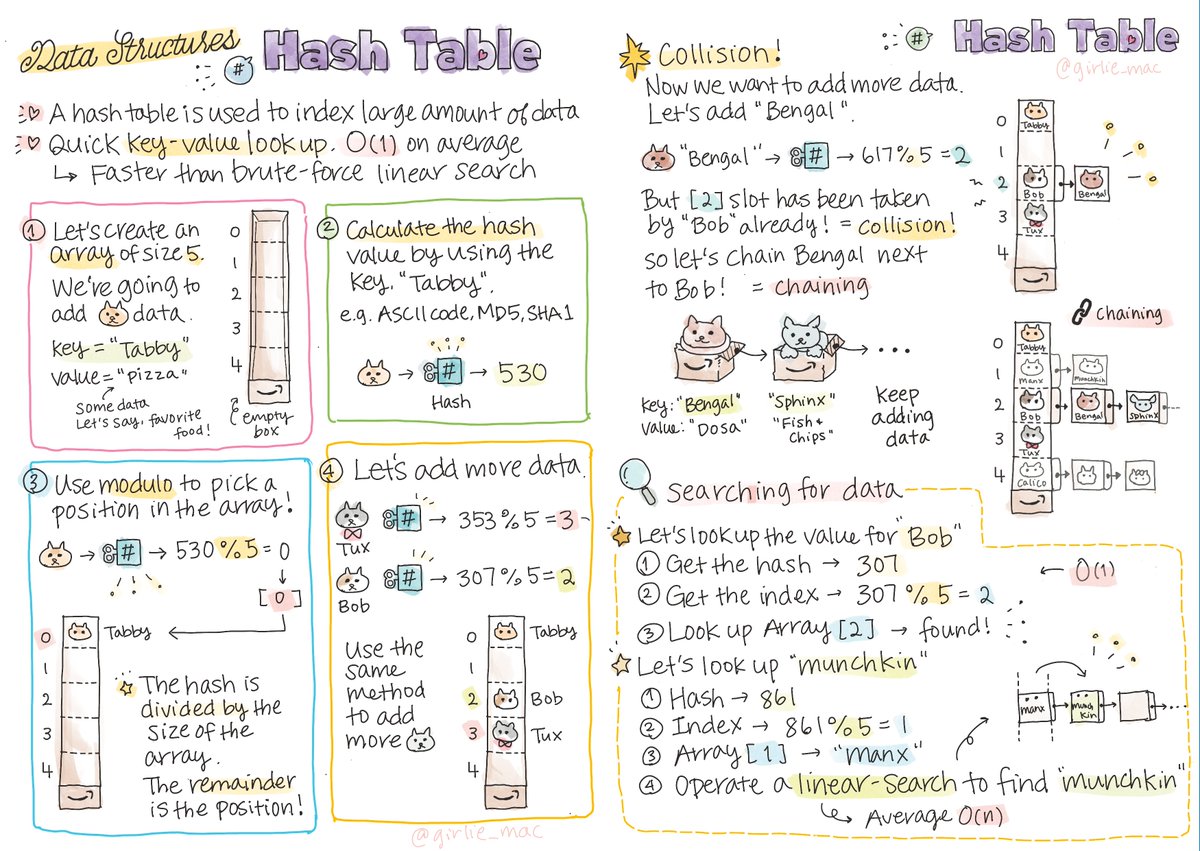 Data Structures
# Hash Table
A hash table is used to index large amount of data
Quick key-value look up. O(1) on average
↳ Faster than brute-force linear search
① Let's create an
array of size 5.
We're going to
add data.
key = "Tabby"
value = "pizza"
some data
Let's say, favorite
food!
0
1
2
3
4
empty
box
② Calculate the hash
value by using the
key, "Tabby".
e.g. ASCII code, MD5, SHA1
→ # → 530
Hash
③ Use modulo to pick a
position in the array!
→ # → 530 % 5 = 0
[0]
0 Tabby
1
2
3
4
The hash is
divided by the
size of the
array.
The remainder
is the position!
④ Let's add more data.
→ # → 353 % 5 = 3
Tux
→ # → 307 % 5 = 2
Bob
Use the
same
method
to add
more
0 Tabby
1
2 Bob
3 Tux
4
@girlie_mac
# Hash Table
@girlie_mac
Collision!
Now we want to add more data.
Let's add "Bengal".
"Bengal" → # → 617 % 5 = 2
But [2] slot has been taken
by "Bob" already! = collision!
so let's chain Bengal next
to Bob! = chaining
key: "Bengal"
value: "Dosa"
"Sphinx"
"Fish &
Chips"
...
keep
adding
data
0 Tabby
1
2 Bob → Bengal
3 Tux
4
chaining
0 Tabby
1 Manx Munchkin
2 Bob → Bengal → Sphinx
3 Tux
4 Calico
Searching for data
Let's look up the value for "Bob"
① Get the hash → 307
② Get the index → 307 % 5 = 2
③ Look up Array [2] → found!
← O(1)
Let's look up "munchkin"
① Hash → 861
② Index → 861 % 5 = 1
③ Array [1] → "manx"
④ Operate a linear-search to find "munchkin"
↳ Average O(n)
manx → munchkin → → ...